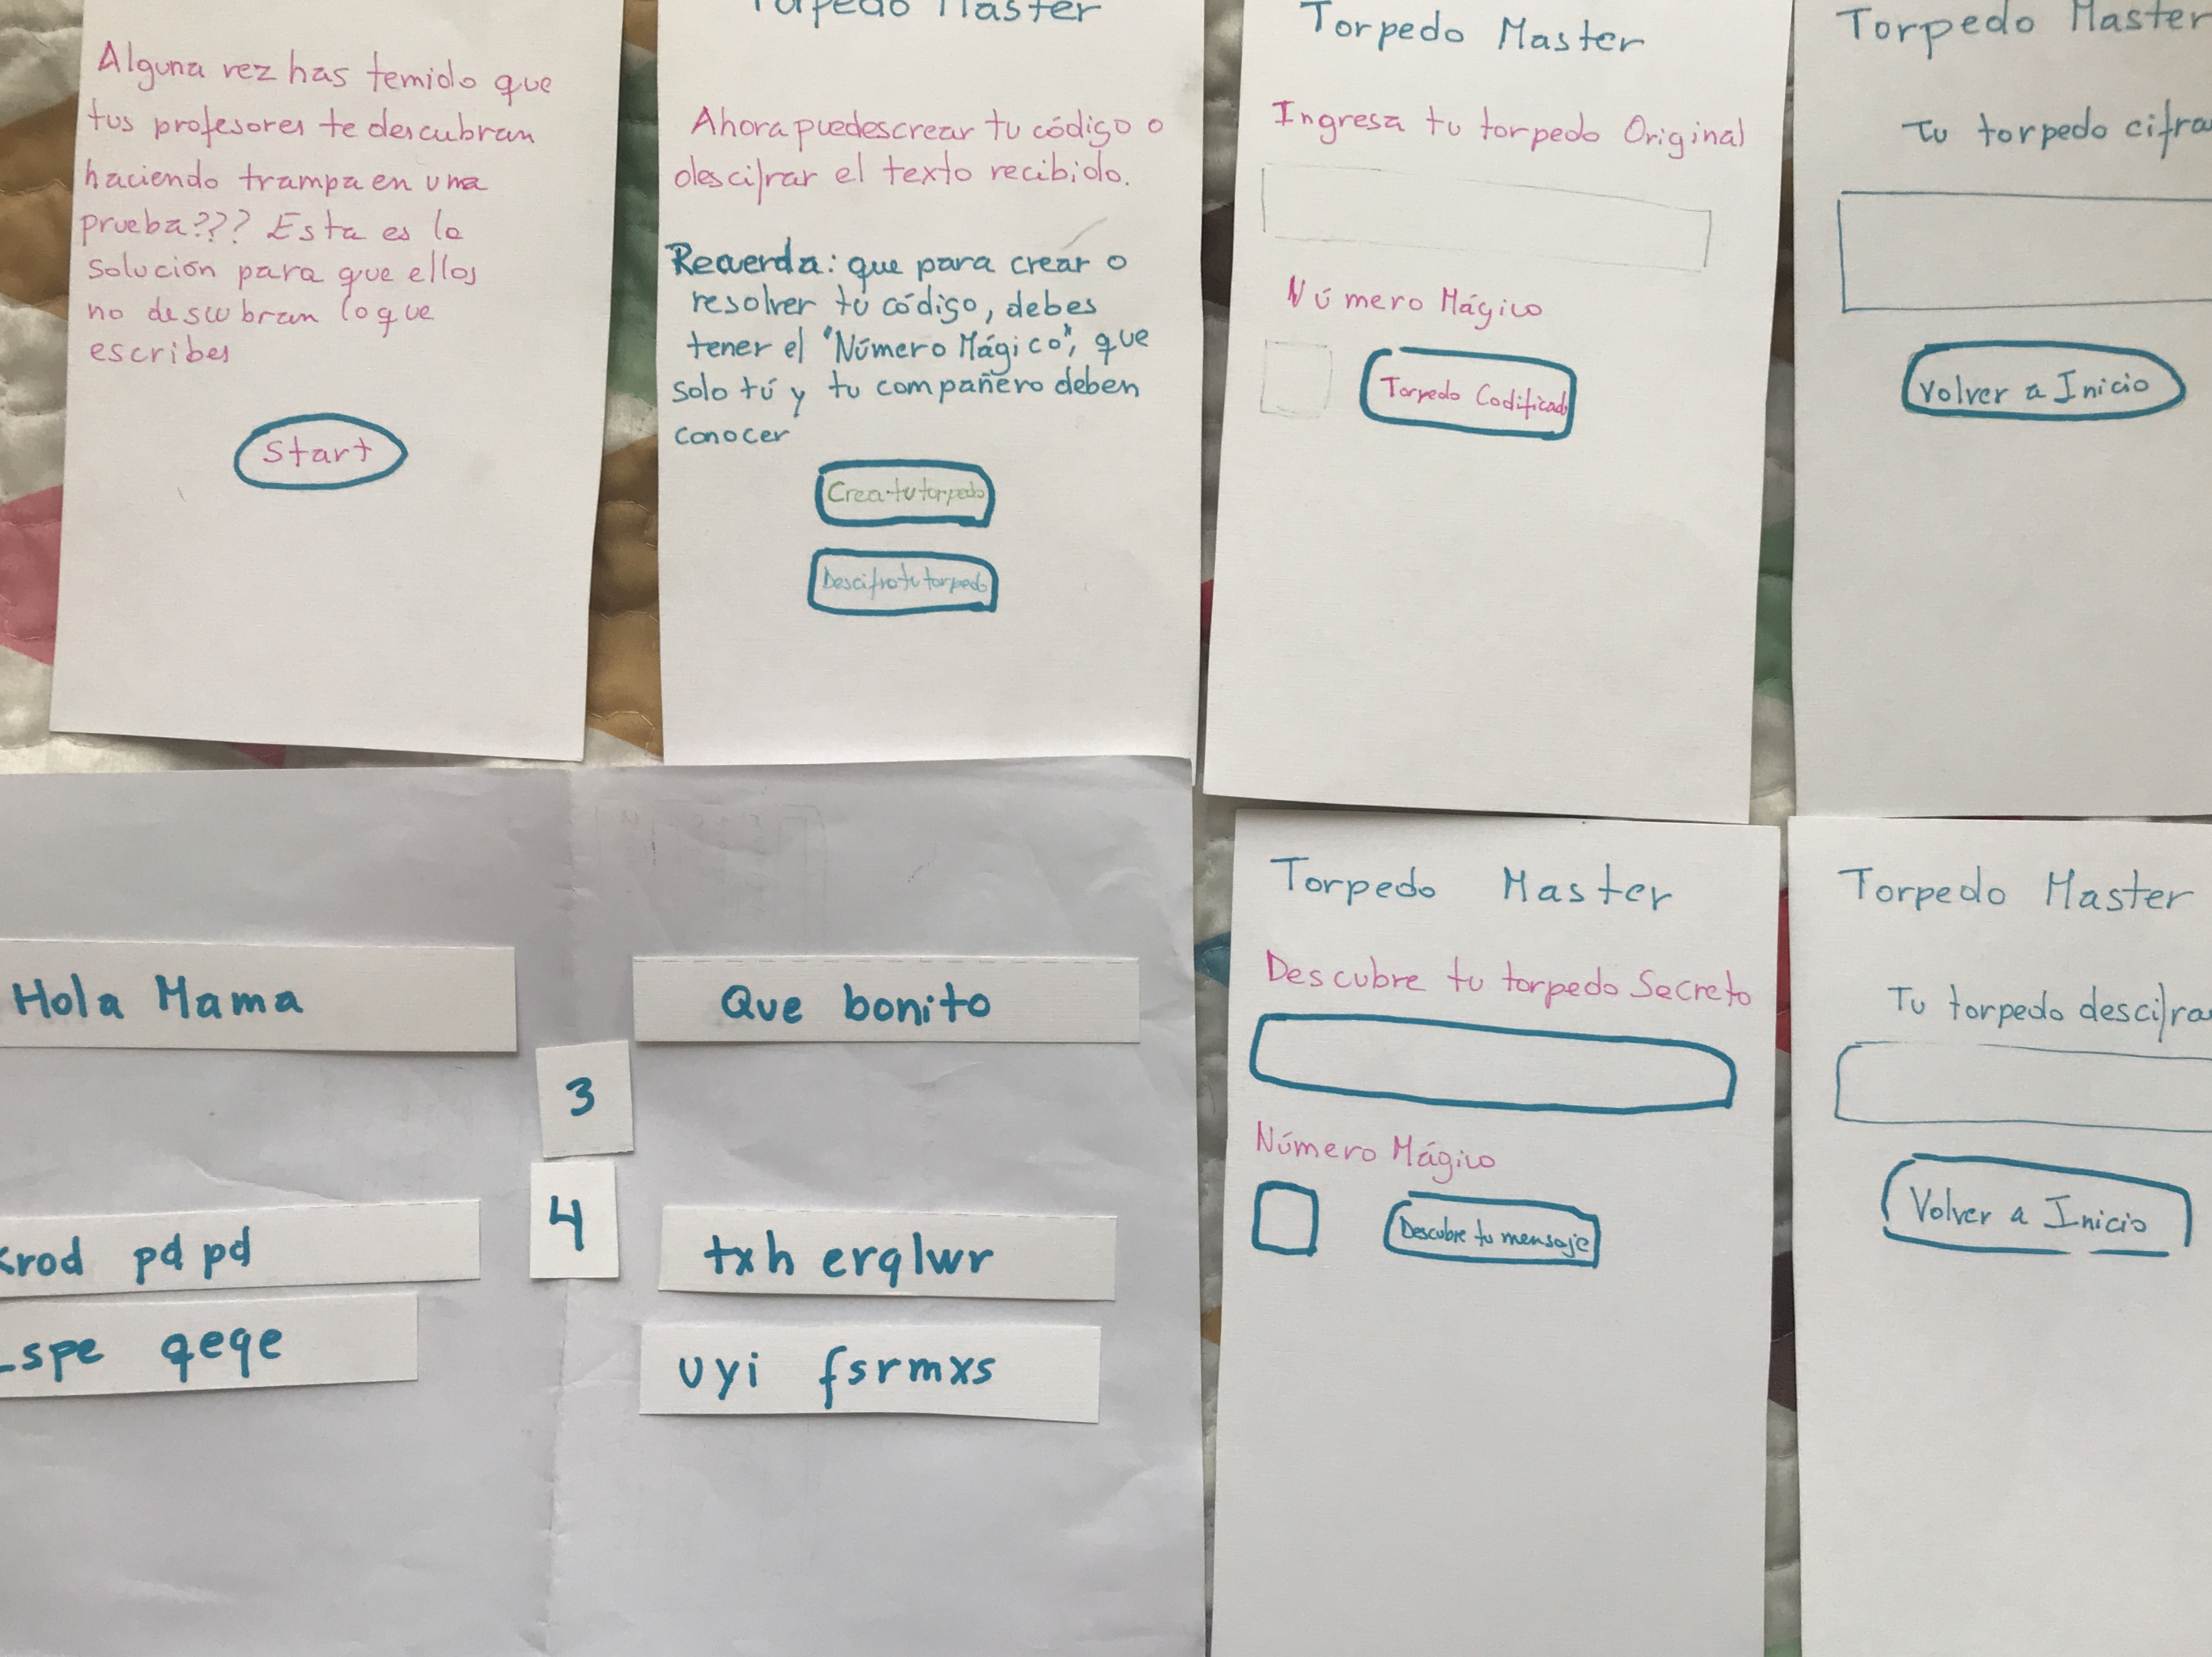 Alguna vez has temido que
tus profesores te descubran
haciendo trampa en una
prueba??? Esta es la
solución para que ellos
no descubran lo que
escribes
Start
Torpedo Master
Ahora puedes crear tu código o
descifrar el texto recibido.
Recuerda: que para crear o
resolver tu código, debes
tener el "Número Mágico", que
solo tú y tu compañero deben
conocer
Crea tu torpedo
Descifra tu torpedo
Torpedo Master
Ingresa tu torpedo Original
Número Mágico
Torpedo Codificado
Torpedo Master
Tu torpedo cifra
Volver a Inicio
Hola Mama
Que bonito
3
4
krod pdpd
txh erqlwr
spe qeqe
uyi fsrmxs
Torpedo Master
Descubre tu torpedo Secreto
Número Mágico
Descubre tu mensaje
Torpedo Master
Tu torpedo descifra
Volver a Inicio